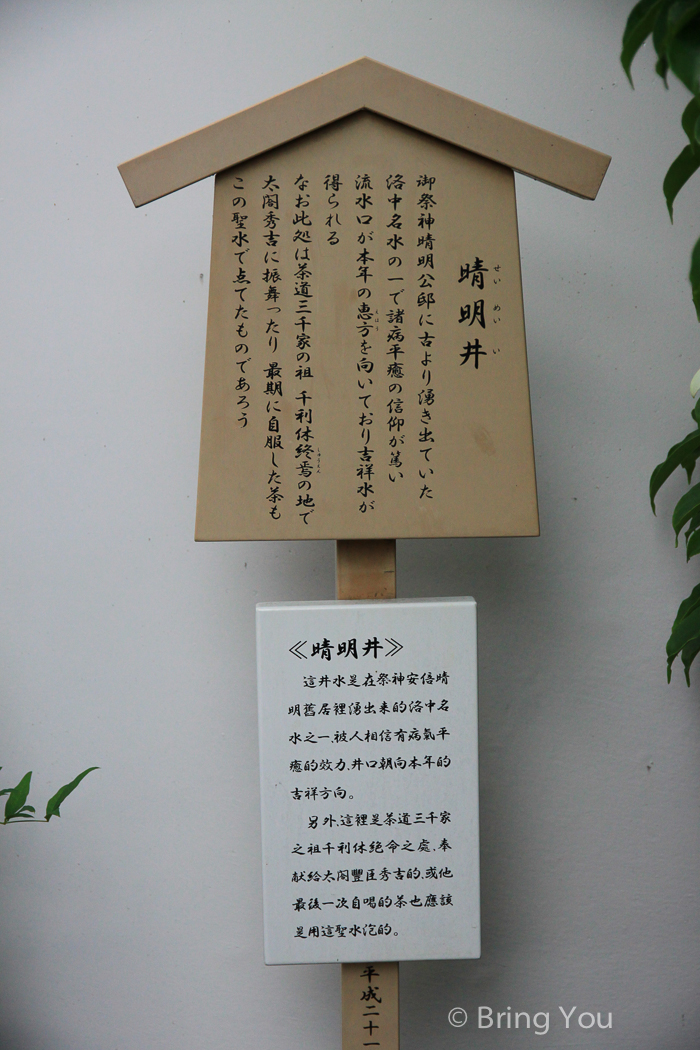 晴明井
せいめいい
御祭神晴明公邸に古より湧き出ていた
洛中名水の一で諸病平癒の信仰が篤い
流水口が本年の恵方を向いており吉祥水が
えほう
得られる
なお此処は茶道三千家の祖 千利休終焉の地で
しゅうえん
太閤秀吉に振舞ったり 最期に自服した茶も
この聖水で点てたものであろう
≪晴明井≫
這井水是在祭神安倍晴
明舊居裡湧出来的洛中名
水之一、被人相信有病氣平
癒的效力、井口朝向本年的
吉祥方向。
另外、這裡是茶道三千家
之祖千利休絶命之處、奉
献給太閤豐臣秀吉的、或他
最後一次自喝的茶也應該
是用這聖水泡的。
平成二十一
© Bring You